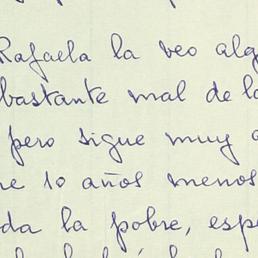 Rafaela la veo alg
bastante mal de la
pero sigue muy
10 años menos
da la pobre, esp